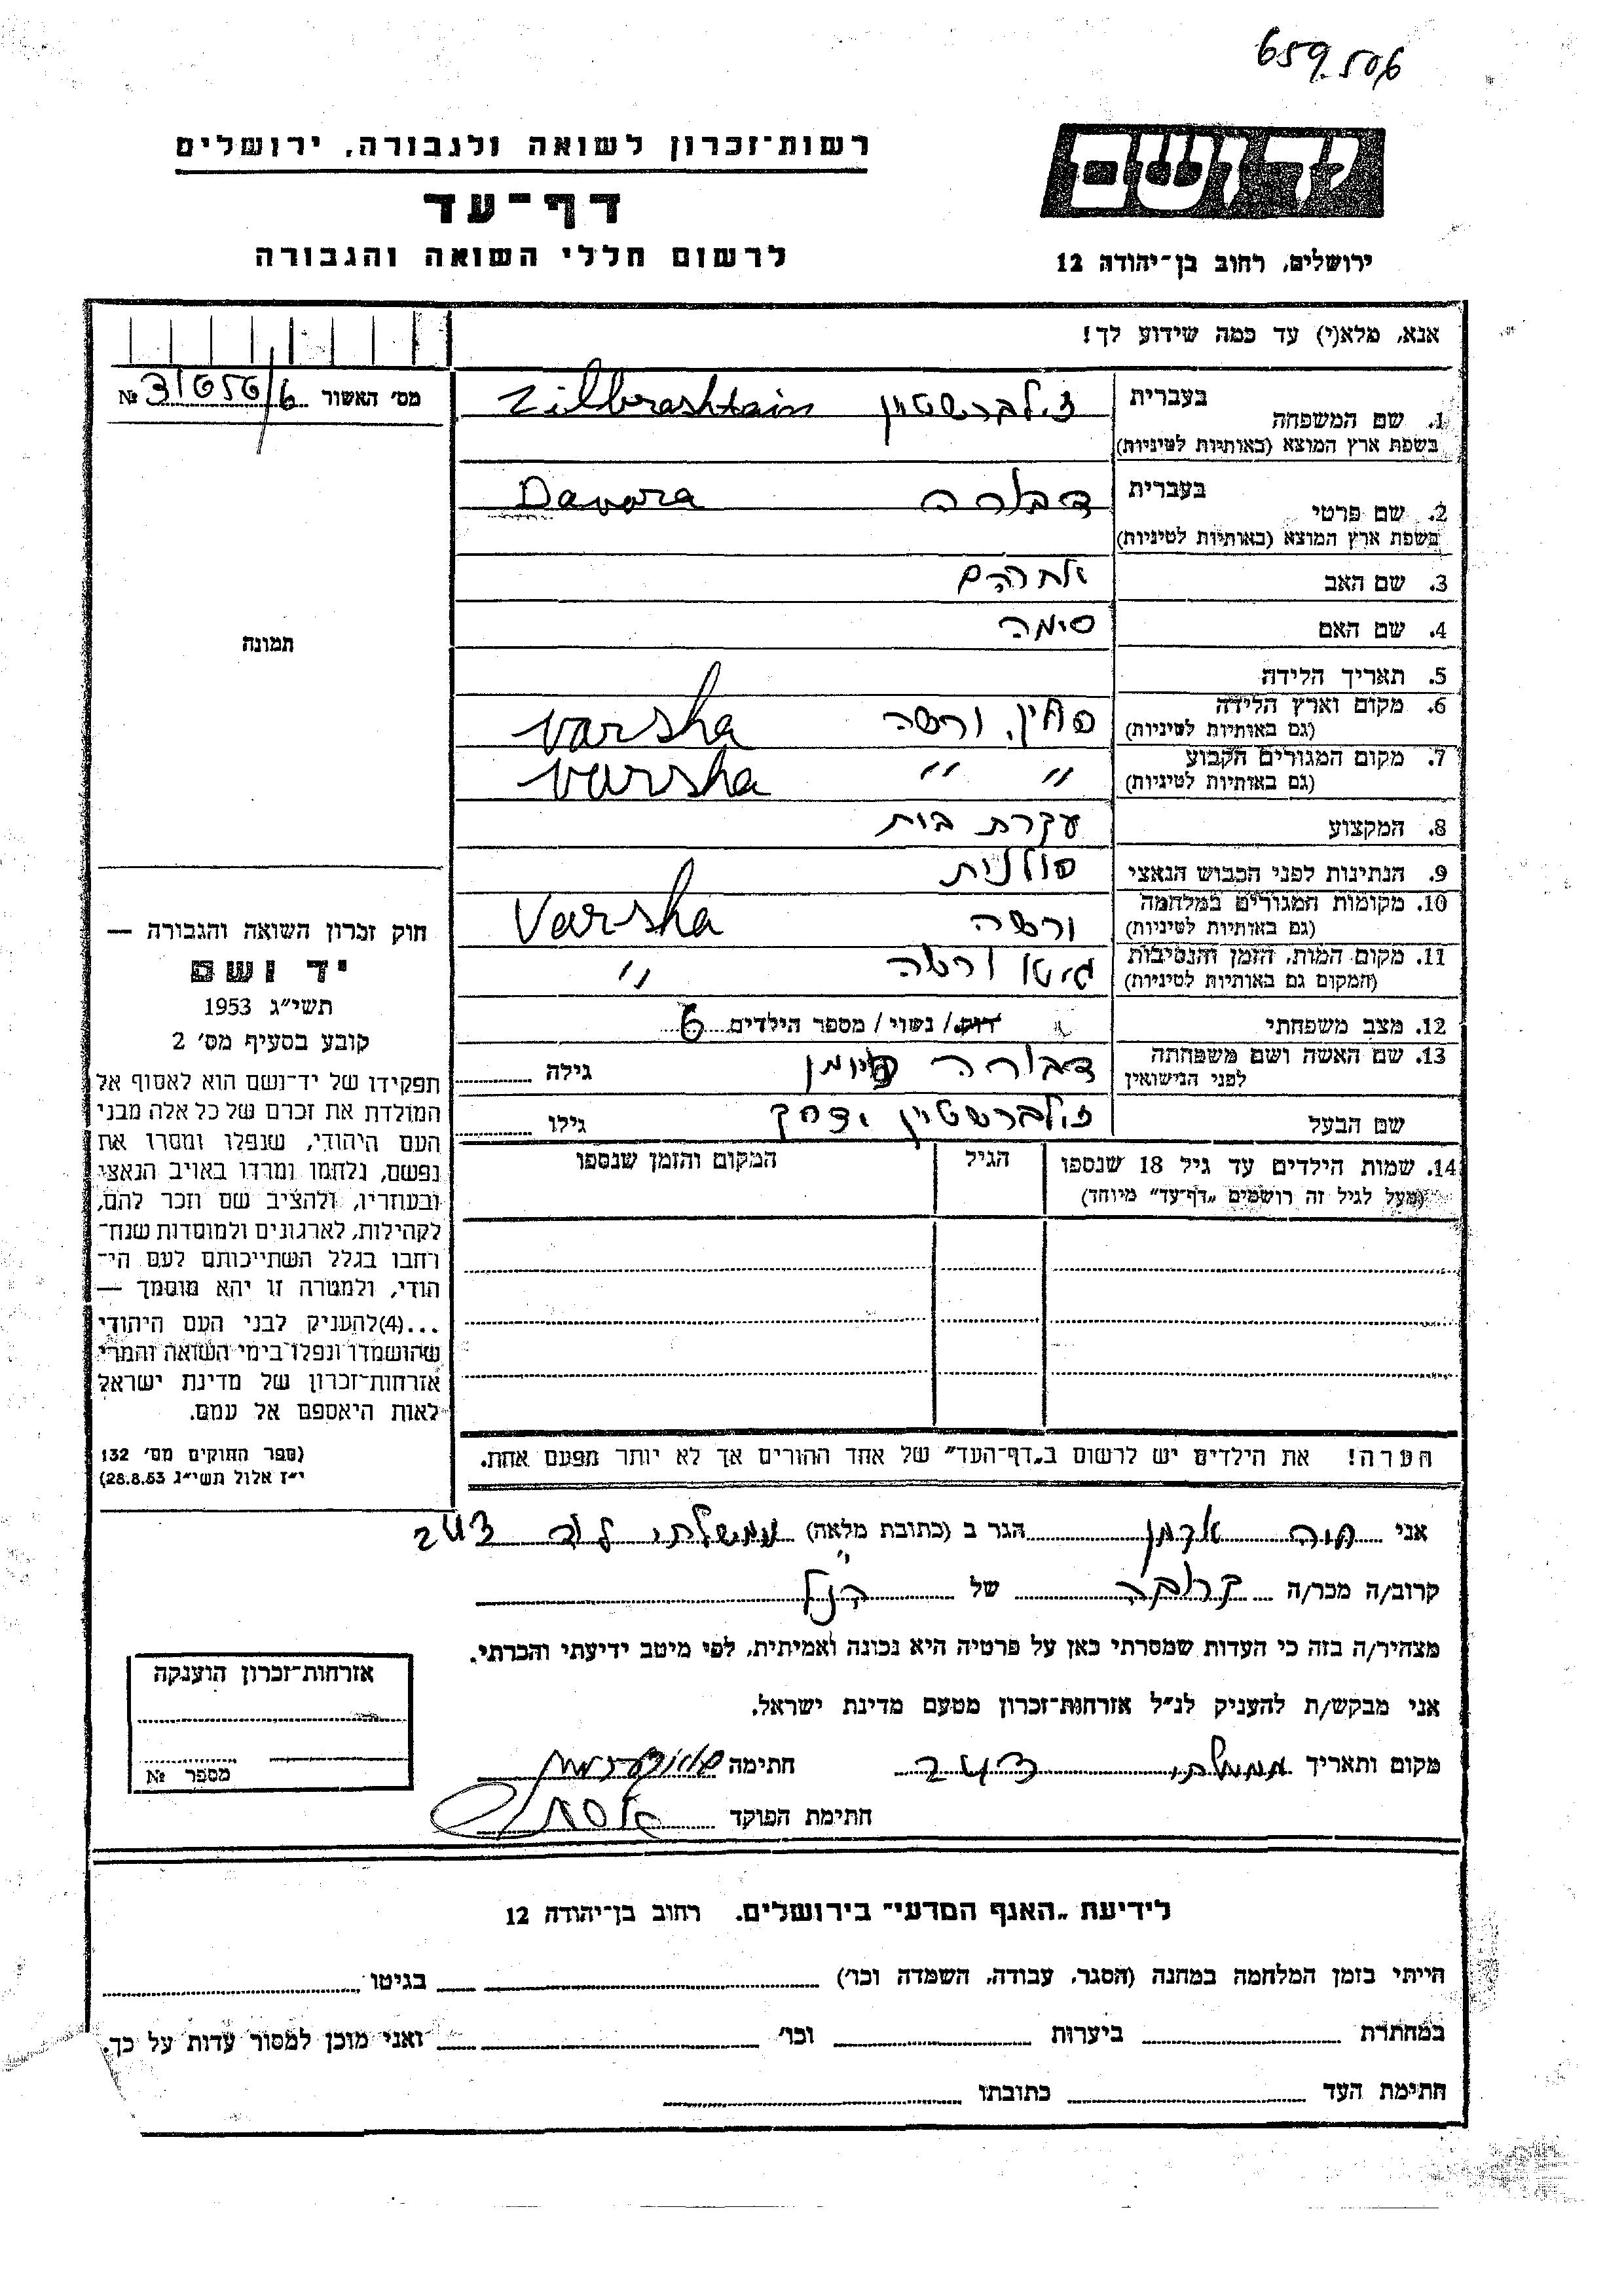 659506
יד ושם
רשות־זכרון לשואה ולגבורה, ירושלים
דף־עד
לרשום חללי השואה והגבורה
ירושלים, רחוב בן־יהודה 12
אנא, מלא(י) עד כמה שידוע לך!
מס׳ האשור №
1. שם המשפחה בעברית זילברשטיין Zilberashtain
בשפת ארץ המוצא (באותיות לטיניות)
2. שם פרטי בעברית דבורה Davora
בשפת ארץ המוצא (באותיות לטיניות)
3. שם האב אברהם
4. שם האם סימה
5. תאריך הלידה
6. מקום וארץ הלידה פולין, ורשה Varsha
(גם באותיות לטיניות)
7. מקום המגורים הקבוע " " " Varsha
(גם באותיות לטיניות)
8. המקצוע עקרת בית
9. הנתינות לפני הכבוש הנאצי פולנית
10. מקומות המגורים במלחמה ורשה Varsha
(גם באותיות לטיניות)
11. מקום המות, הזמן והנסיבות גיטו ורשה "
(המקום גם באותיות לטיניות)
12. מצב משפחתי רוק/ נשוי / מספר הילדים 6
13. שם האשה ושם משפחתה דבורה גילה
לפני הנישואין
שם הבעל זילברשטיין יצחק גילו
14. שמות הילדים עד גיל 18 שנספו הגיל המקום והזמן שנספו
(מעל לגיל זה רושמים „דף־עד" מיוחד)
הערה! את הילדים יש לרשום ב„דף־העד" של אחד ההורים אך לא יותר מפעם אחת.
תמונה
חוק זכרון השואה והגבורה —
יד ושם
תשי"ג 1953
קובע בסעיף מס׳ 2
תפקידו של יד־ושם הוא לאסוף אל
המולדת את זכרם של כל אלה מבני
העם היהודי, שנפלו ומסרו את
נפשם, נלחמו ומרדו באויב הנאצי
ובעוזריו, ולהציב שם וזכר להם,
לקהילות, לארגונים ולמוסדות שנח־
רחבו בגלל השתייכותם לעם הי־
הודי, ולמטרה זו יהא מוסמך —
...(4)להעניק לבני העם היהודי
שהושמדו ונפלו בימי השואה והמרי
אזרחות־זכרון של מדינת ישראל
לאות היאספם אל עמם.
(ספר החוקים מס׳ 132
י"ז אלול תשי"ג 28.8.53)
אני חוה הגר ב (כתובת מלאה)
קרוב/ה מכר/ה קרובה של הנ"ל
מצהיר/ה בזה כי העדות שמסרתי כאן על פרטיה היא נכונה ואמיתית, לפי מיטב ידיעתי והכרתי.
אני מבקש/ת להעניק לנ"ל אזרחות־זכרון מטעם מדינת ישראל.
מקום ותאריך חתימה
חתימת הפוקד
אזרחות־זכרון הוענקה
מספר №
לידיעת „האגף המדעי" בירושלים. רחוב בן־יהודה 12
הייתי בזמן המלחמה במחנה (הסגר, עבודה, השמדה וכו׳) בגיטו
במחתרת ביערות וכו׳ ואני מוכן למסור עדות על כך.
חתימת העד כתובתו